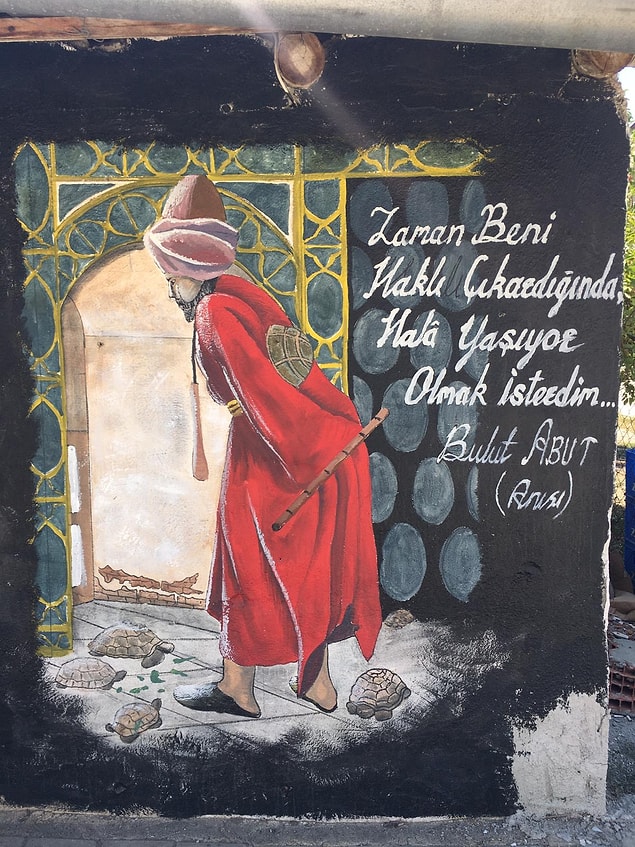 Zaman Beni
Haklı Çıkardığında,
Halâ Yaşıyor
Olmak isterdim...
Bulut ABUT
(Anısı)